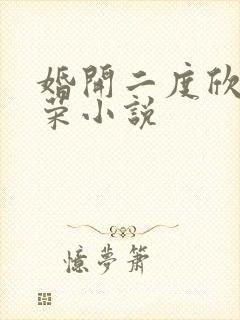 婚開二度欣
荣小說
憶夢蕭